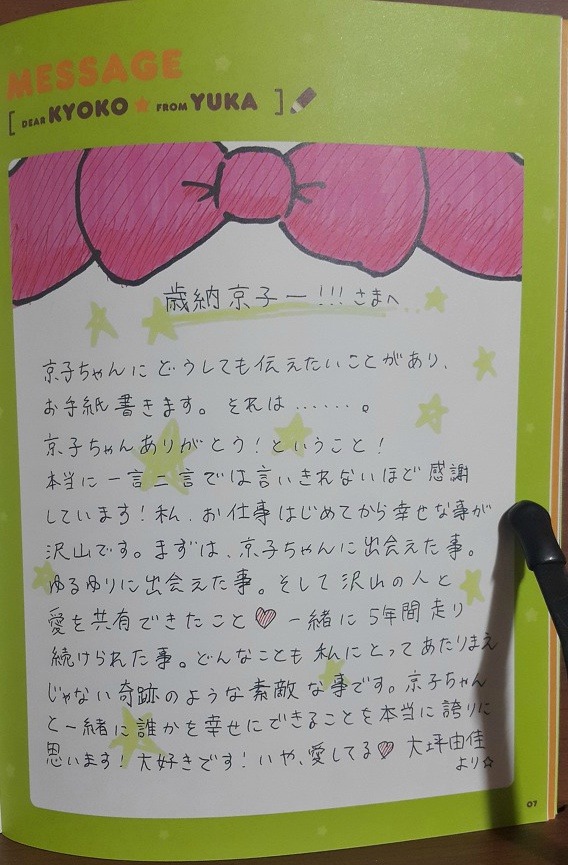 MESSAGE
[ DEAR KYOKO ★ FROM YUKA ]
歳納京子ー!!!さまへ
京子ちゃんにどうしても伝えたいことがあり、
お手紙書きます。それは……。
京子ちゃんありがとう!ということ!
本当に一言二言では言いきれないほど感謝
しています!私、お仕事はじめてから幸せな事が
沢山です。まずは、京子ちゃんに出会えた事。
ゆるゆりに出会えた事。そして沢山の人と
愛を共有できたこと♡一緒に5年間走り
続けられた事。どんなことも私にとってあたりまえ
じゃない奇跡のような素敵な事です。京子ちゃん
と一緒に誰かを幸せにできることを本当に誇りに
思います!大好きです!いや、愛してる♡ 大坪由佳
より☆
07